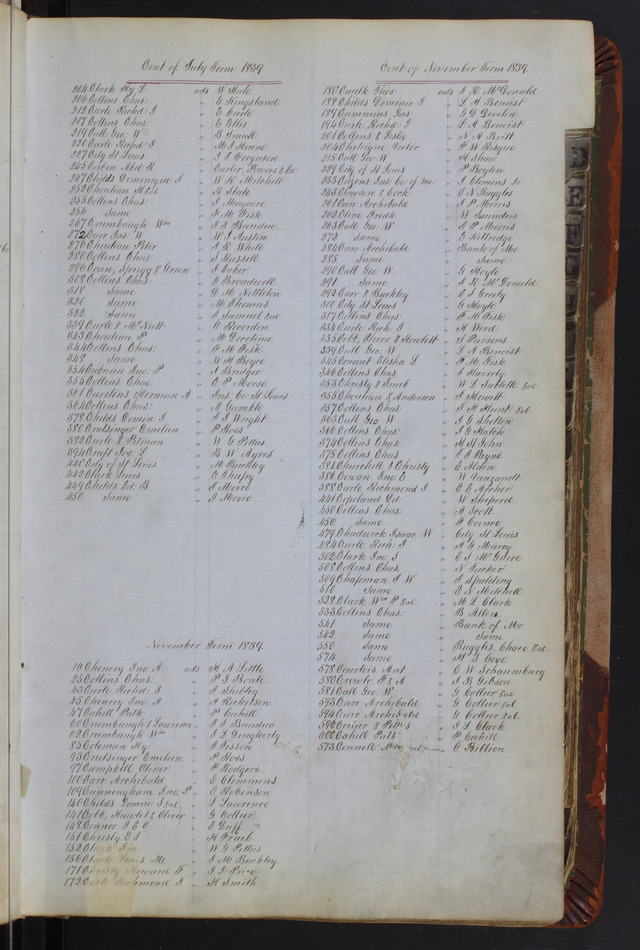 Cont of July Term 1839
204 Clark Hy L ads W Hale
206 Collens Chas: " G Kingsland
212 Curle Richd: I " E Curle
217 Collens Chas: " E Ellis
219 Call Geo: W " B Small
226 Curle Richd: I " M I Kane
227 City St Louis " I I Ferguson
245 Corbin Abel R " Carter, Powers & Co:
247 Childs Dominique I " W K Mitchell
252 Chouteau H " K Slate
255 Collens Chas: " I Maguire
256 Same " H M Fisk
267 Crumbaugh Wm " I S Bandea
272 Carr Jas: W " W I Austen
276 Chouteau Peter " I R White
280 Collens Chas: " S Russell
296 Cain, Sprigg & Green " I Baker
308 Collens Chas " C Broadwell
318 Same " G M Nettleton
320 Same " M Thomas
322 Same " A Samuel &al
339 Curle & McNutt " C Reordon
343 Chouteau P " M Doroteau
344 Collens Chas: " H M Fisk
348 Same " W H Boyce
354 Cabanne Jno: P " A Badger
355 Collens Chas. " O P Morse
361 Carstens Herman A " Ins: Co: St Louis
364 Collens Chas: " R Gamble
378 Childs Domin: I " I I Wright
380 Crutsinger Emelien " P Ross
382 Curle & Pitman " W G Pettus
394 Craft Jos: L " B W Ayres
440 City of St Louis " M Brotby
442 Clark Lewis " C Shefry
449 Childs Ed: B " I Moore
450 Same " I Moore
November Term 1839.
16 Chenery Jno: A ads H A Little
25 Collens Chas: " P I Boate
43 Curle Richd: I " I Shibley
45 Chenery Jno: A " A Rickertson
47 Cahill Patk " P Cahill
60 Crumbaugh & Lawrence " I I Banduc
62 Crumbaugh Wm " I L Dougherty
85 Coleman Hy. " I Sisson
93 Crutsinger Emelien " P Ross
97 Campbell Oliver " P Rodgers
100 Carr Archibald " E Clemmens
109 Cunningham Jno: P " C Robinson
140 Childs Domin: I &al " I Lawrence
141 Cobb, Hawlet & Oliver " G Collier
148 Connor I E O " E Duff
151 Christy E T " H Fraeb
152 Clark Jno: " W G Pettus
156 Clark Lewis M: " I M Buckley
171 Christy Howard F " I I Price
172 Curle Richmond I " H Smith
Cont of November Term 1839.
180 Caulk Thos ads I K McDonald
188 Childs Dominic G " L A Benoist
189 Cummins Jas " G D Devlin
194 Curle Richd: I " L A Benoist
201 Collens & Leslie " N A Britt
204 " W Risque
215 Call Geo: W " H Shaw
229 City of St Louis " P Boylen
253 Citizens Ins: Co: of Mo. " I Clemens Jr
263 Clawson & Cook " E N Ruggles
261 Carr Archibald " I P Morris
262 Cline Fredk " W Saunders
263 Call Geo: W " I P Morris
273 Same " E Kittredge
284 Carr Archibald " Bank of Mo
285 Same " Same
290 Call Geo: W. " G Hoyle
291 Same " I K McDonald
292 Carr & Buckley " E S Greely
301 City St Louis " G Hoyle
317 Collens Chas: " H M Fisk
334 Curle Rich: I " H Wood
335 Cobb, Oliver & Howlett " S Parsons
339 Call Geo: W. " L A Benoist
345 Conant Elisha L " H M Fisk
346 Collens Chas " I Haverty
353 Christy & Fraeb " W L Sublette &al.
355 Chouteau & Anderson " I Hewitt
357 Collens Chas: " I H Hunt &al
365 Call Geo: W " I G Shelton
366 Collens Chas: " I G Hatch
374 Collens Chas: " H St John
375 Collens Chas " I I Payne
381 Churchill & Christy " E Alden
386 Cowan Jno: E " W Vanzandt
388 Curle Richmond I " O E Archer
441 Copeland Ed: " W Sheperd
450 Collens Chas: " A Scott
456 Same
479 Chadwick Isaac W " City St Louis
484 Curle Rich: I " A G Marcy
502 Clark Jno: I " C S McGuire
508 Collens Chas: " N Tucker
509 Chapman I W. " I Spalding
510 Same " E N Mitchell
528 Clark Wm P &al " M L Clark
533 Collens Chas: " B Allen
541 Same " Bank of Mo.
542 Same " Same
550 Same " Ruggles, Choce &al.
574 Same " H I Coye
578 Courtois Ant " C W Schaumburg
580 Crowle F & A " I B Gibson
581 Call Geo: W " G Collier &al
593 Carr Archibald " G Collier &al
594 Carr Archibald " G Collier &al.
596 " I L Clark
600 Cahill Patk " P Cahill
573 Connell " C Billion